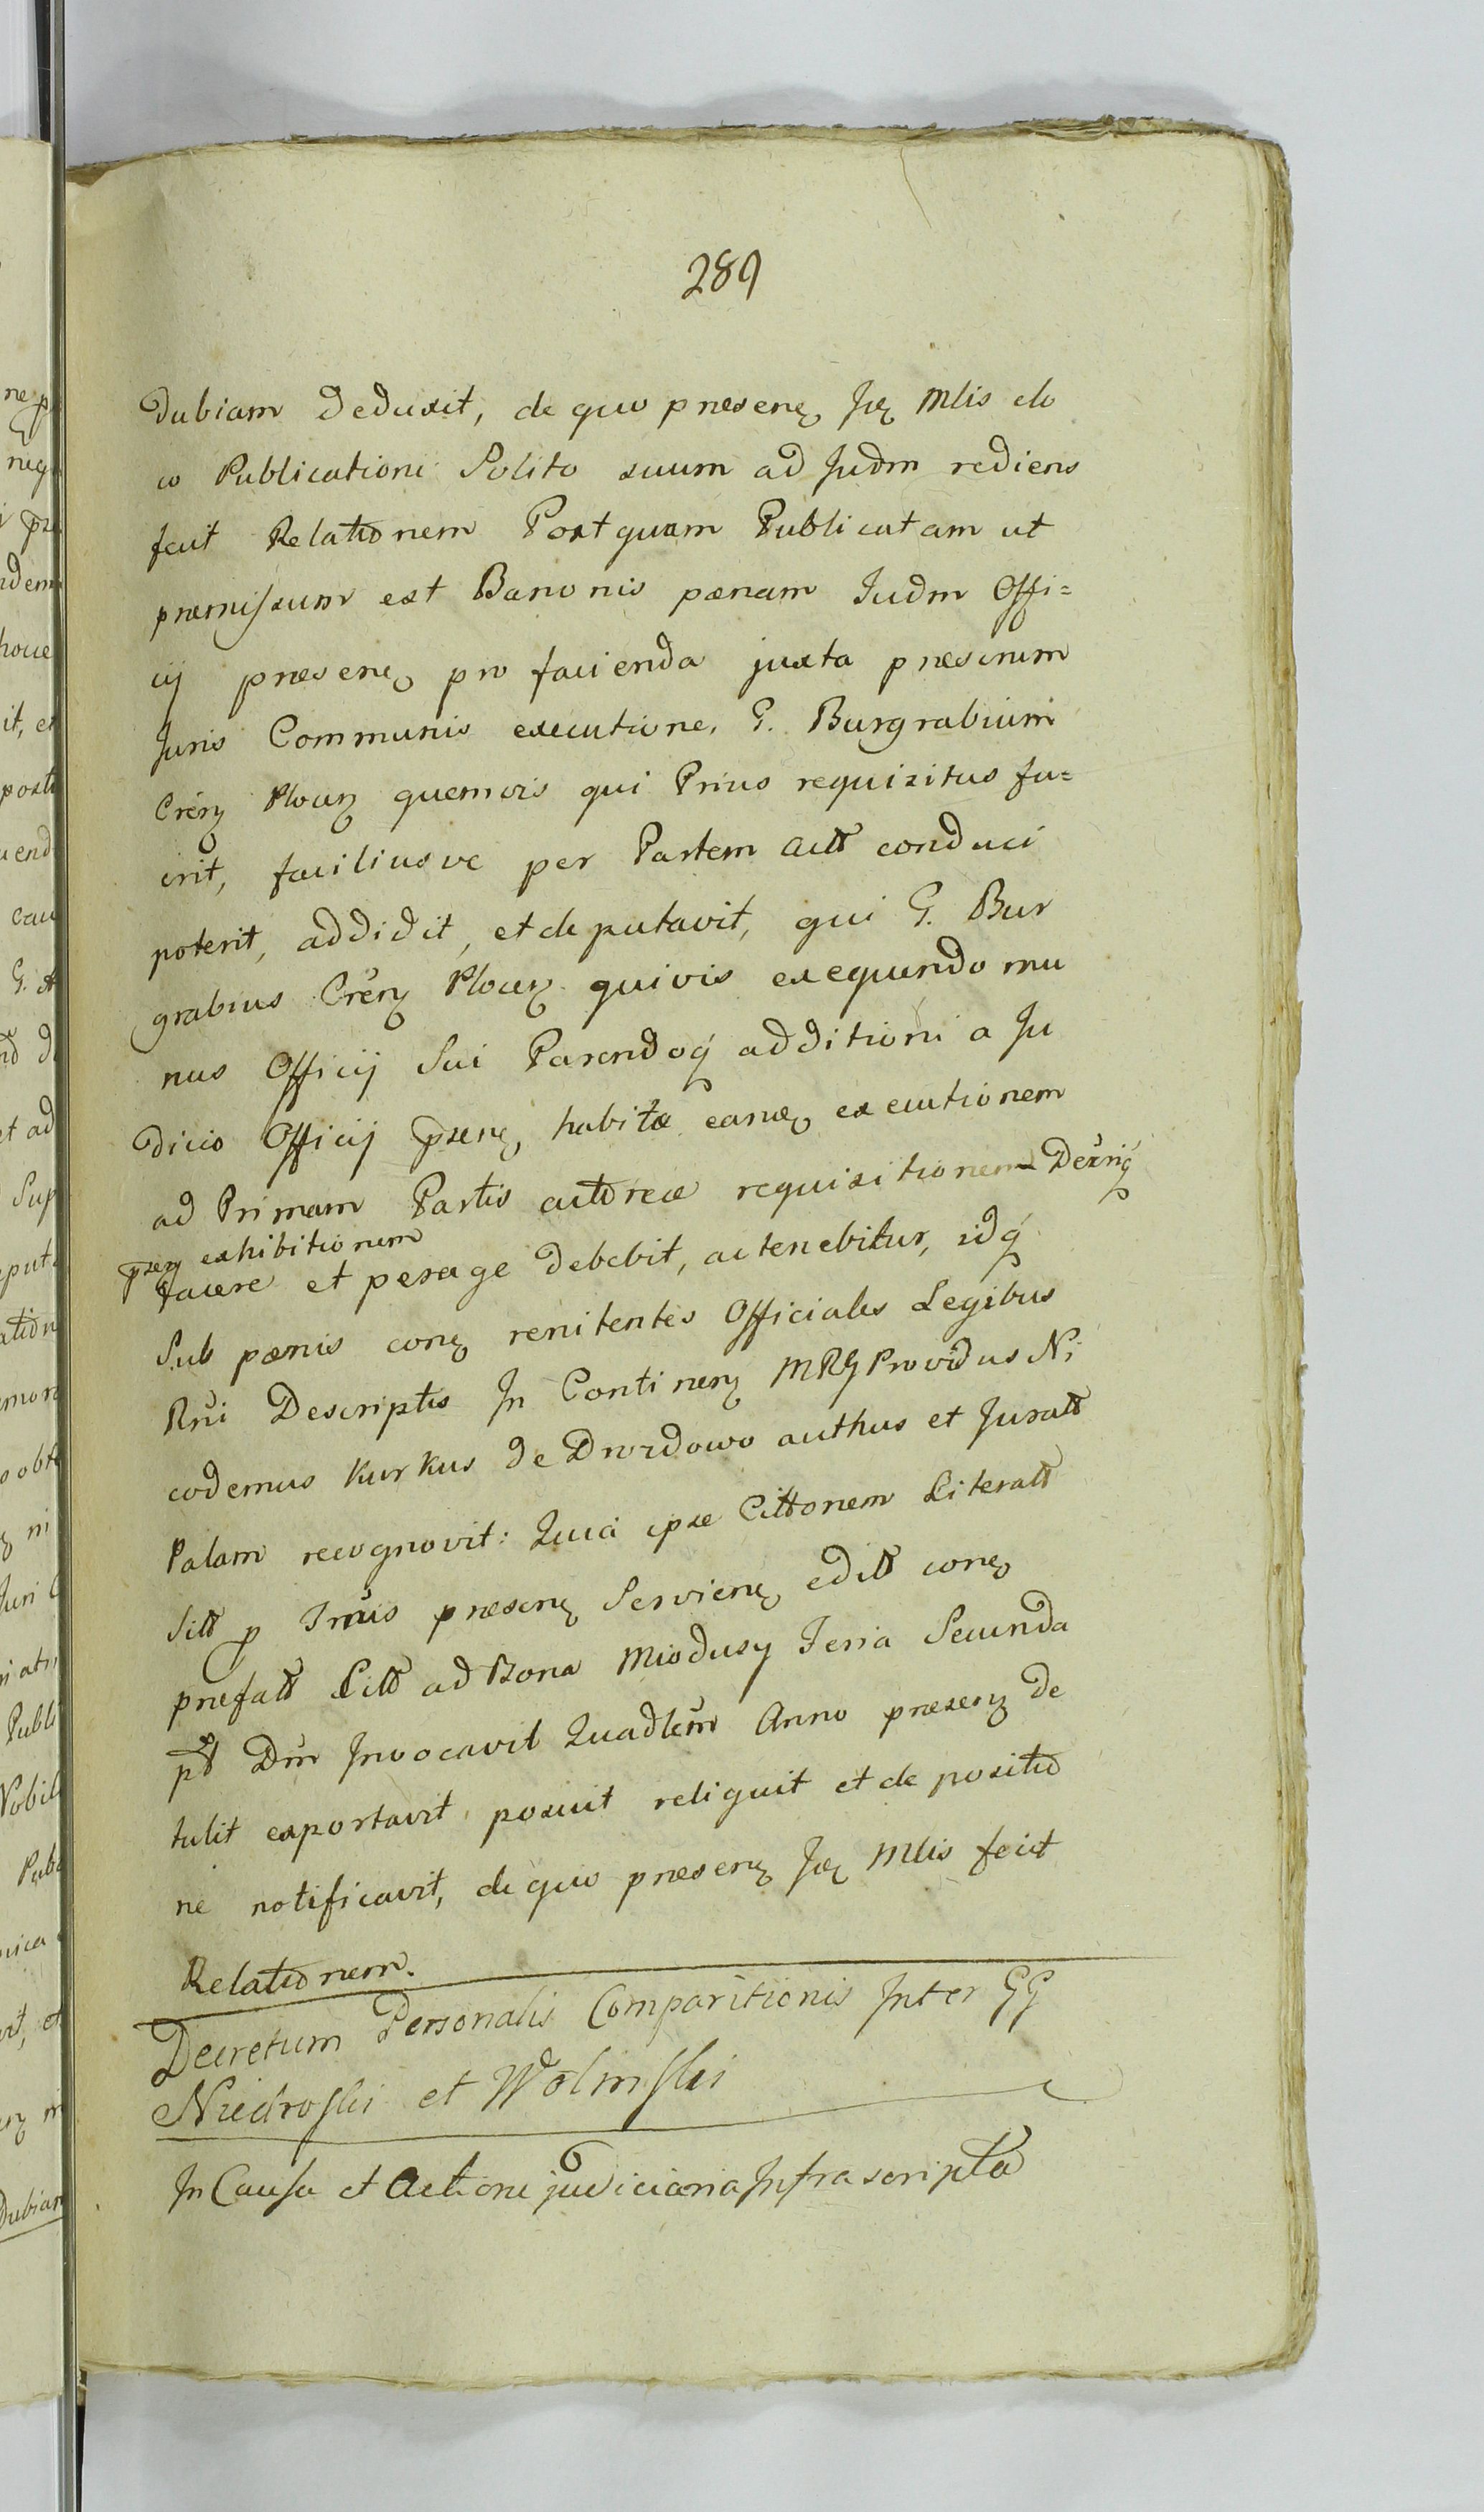 289
Dubiam Deduxit, de quo præsenę Jrę Mlis elo
co Publicationi Solito suum ad Judm rediens
fecit Relationem Postquam Publicatam ut
præmissum est Bannonis pænam Judm Offi=
cij præsenę pro facienda juxta præscrium
Juris Communis executione, G. Burgrabium
Crén̄ Plocen̄ quemvis qui Prius requisitus fu=
erit, faciliusve per Partem Actt conduci
poterit, addidit, et deputavit, qui G. Bur
grabius Crén̄ Plocen̄ quivis exequendo mu
nus Officij Sui Parendoq additioni a Ju
dicio Officij psenę habitæ eanę executionem
ad Primam Partis acttoreæ requisitionem Decriq
psen̄ exhibitionem
facere et perage debebit, ac tenebitur, idq
Sub pænis conę renitentes Officiales Legibus
Rni Descriptis In Continen̄ MRG Providus Ni
codemus Kurkus de Drozdowo authus et Juratt
Palam recognovit: Quia ipse Cittonem Literatt
Sitt p Irnis præsenę Servienę editt conę
præfatt Citt ad Bona Miodusy Feria Secunda
ptt Dm Invocavit Quadlem Anno præsen̄ de
tulit exportavit posuit reliquit et de positio
ne notificavit, de quo præsenę Jrę Mlis fecit
Relationem.
Decretum Personalis Comparitionis Inter GG
Niedroski et Wolinski
In Causa et Actione judiciaria Infrascripta